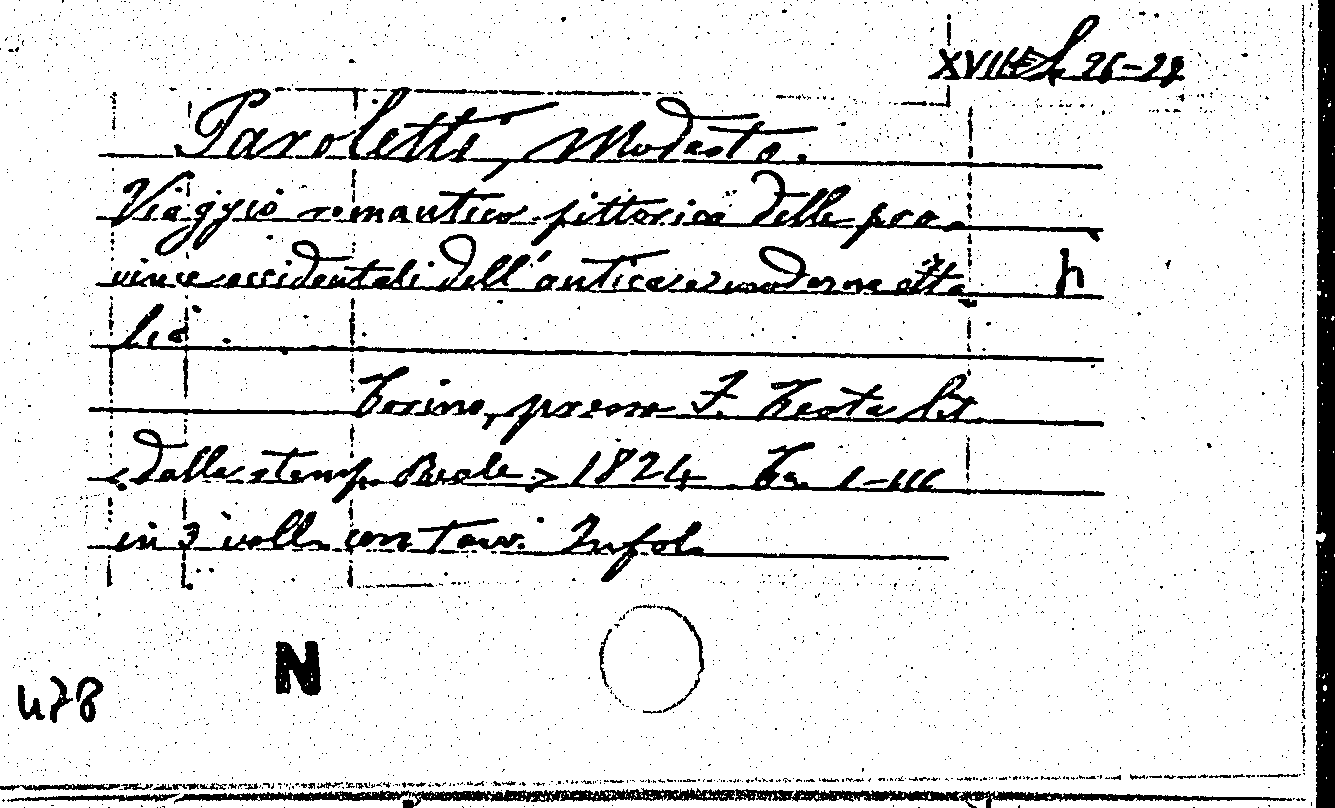 XVIII L 26-28
Paroletti, Modesto.
Viaggio romantico pittorico delle pro-
vince occidentali dell'antica e moderna Ita-
lia.
Torino, presso F. Festa lit.
<dalla stamp. Reale> 1824. To. I-III
in 3 voll. con tav. In fol.
h
N
478